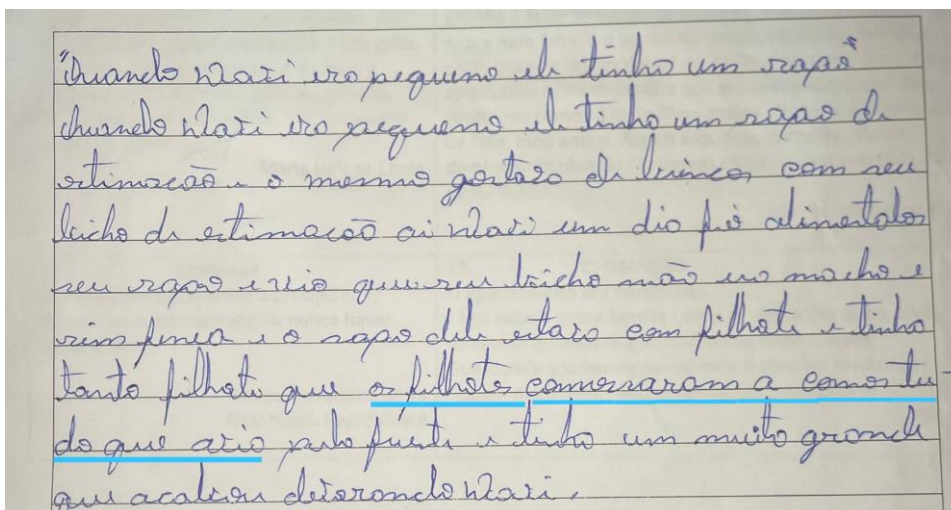 "Quando Mazi ero pequeno ele tinho um sapo"
Quando Mazi ero pequeno ele tinho um sapo de
estimação e o mesmo gostazo de brincar com seu
bicho de estimação ai Mazi um dia foi alimentalor
seu sapo e viu que seu bicho não ero macho e
sim femea e o sapo dele estazo com filhote e tinho
tanto filhote que os filhotes comessaram a comer tu-
do que avio pelo frente e tinho um muito grande
que acabou devorando Mazi.